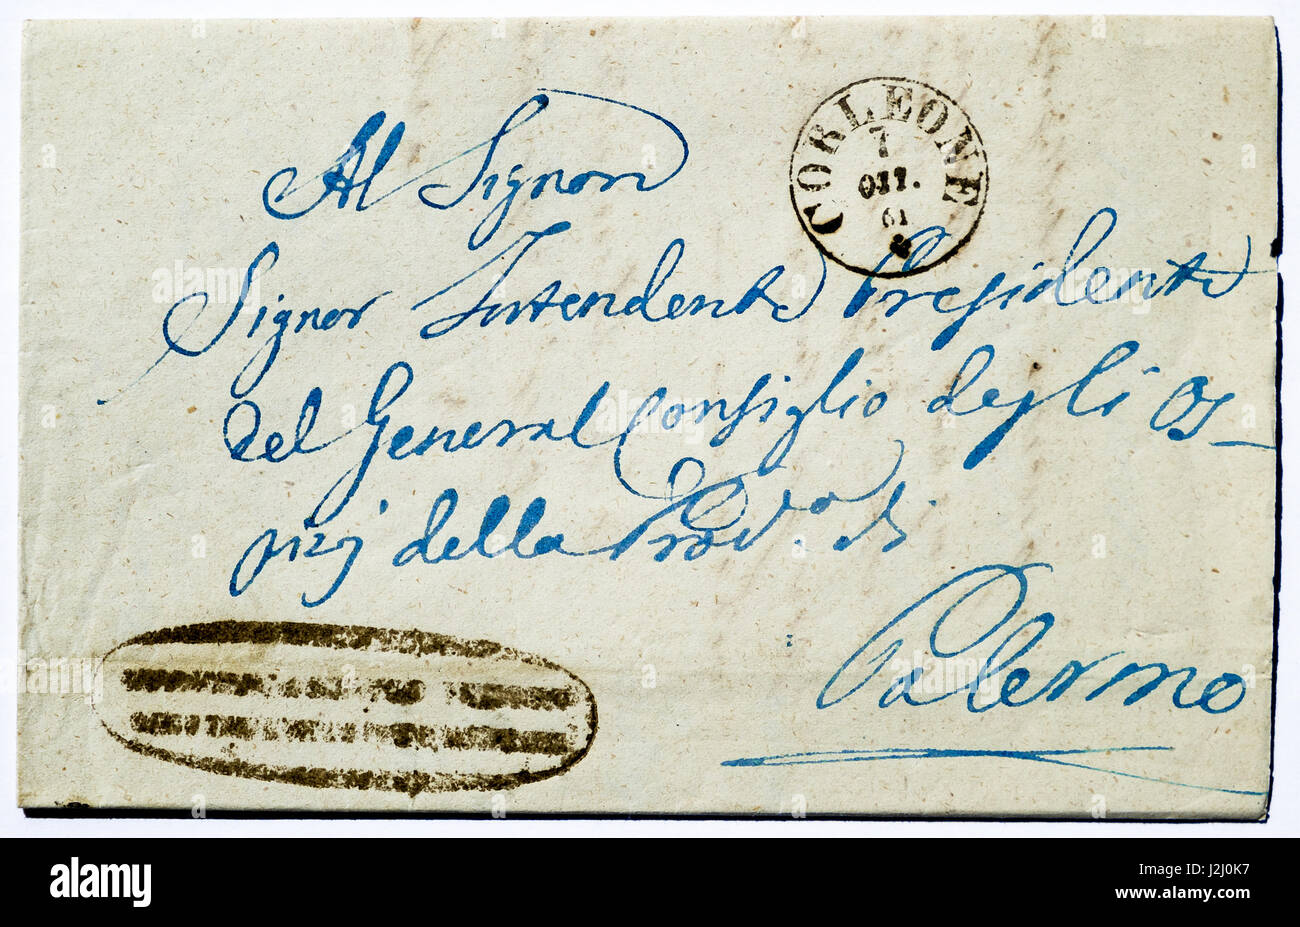 CORLEONE
7
OTT.
61
Al Signor
Signor Intendente Presidente
del General Consiglio degli Os_
pizj della Prov.a di
Palermo
alamy
Image ID: J2J0K7
www.alamy.com